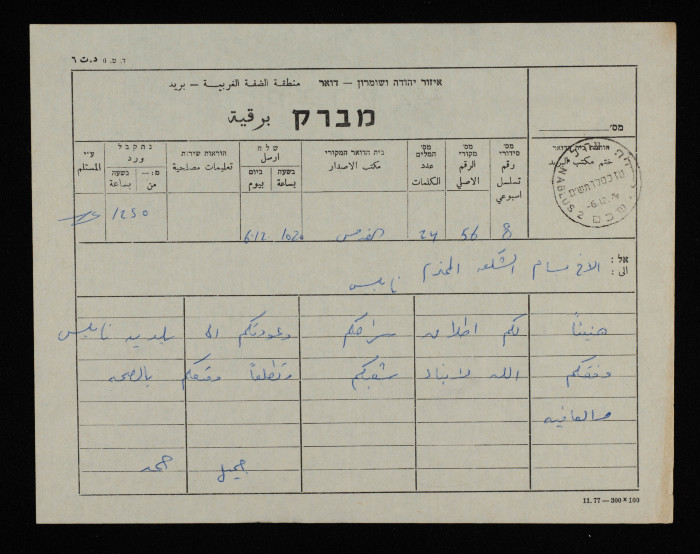 ד. מ. 6 د.ت ٦
איזור יהודה ושומרון – דואר منطقة الضفة الغربية – بريد
מברק برقية
מס׳
ע״י المستلم
נתקבל ورد
מ: – من
בשעה بساعة
הוראות שירות تعليمات مصلحية
שלח ارسل
ביום بيوم
בשעה بساعة
בית הדואר המקורי مكتب الاصدار
מס׳ המלים عدد الكلمات
מס׳ מקורי الرقم الاصلي
מס׳ סידורי رقم تسلسل اسبوعي
חותמת בית הדואר ختم مكتب
NABLUS 2
שכם
-6.12.79
1250
6.12 1020 القدس 24 56 8
אל: الى: الاخ بسام الشكعه المحترم
نابلس
هنيئا لكم اطلاق سراحكم وعودتكم الى بلدية نابلس
وفقكم الله لابناء شعبكم ومتعكم بالصحه
والعافيه
جميل حمد
11.77 – 300 × 100